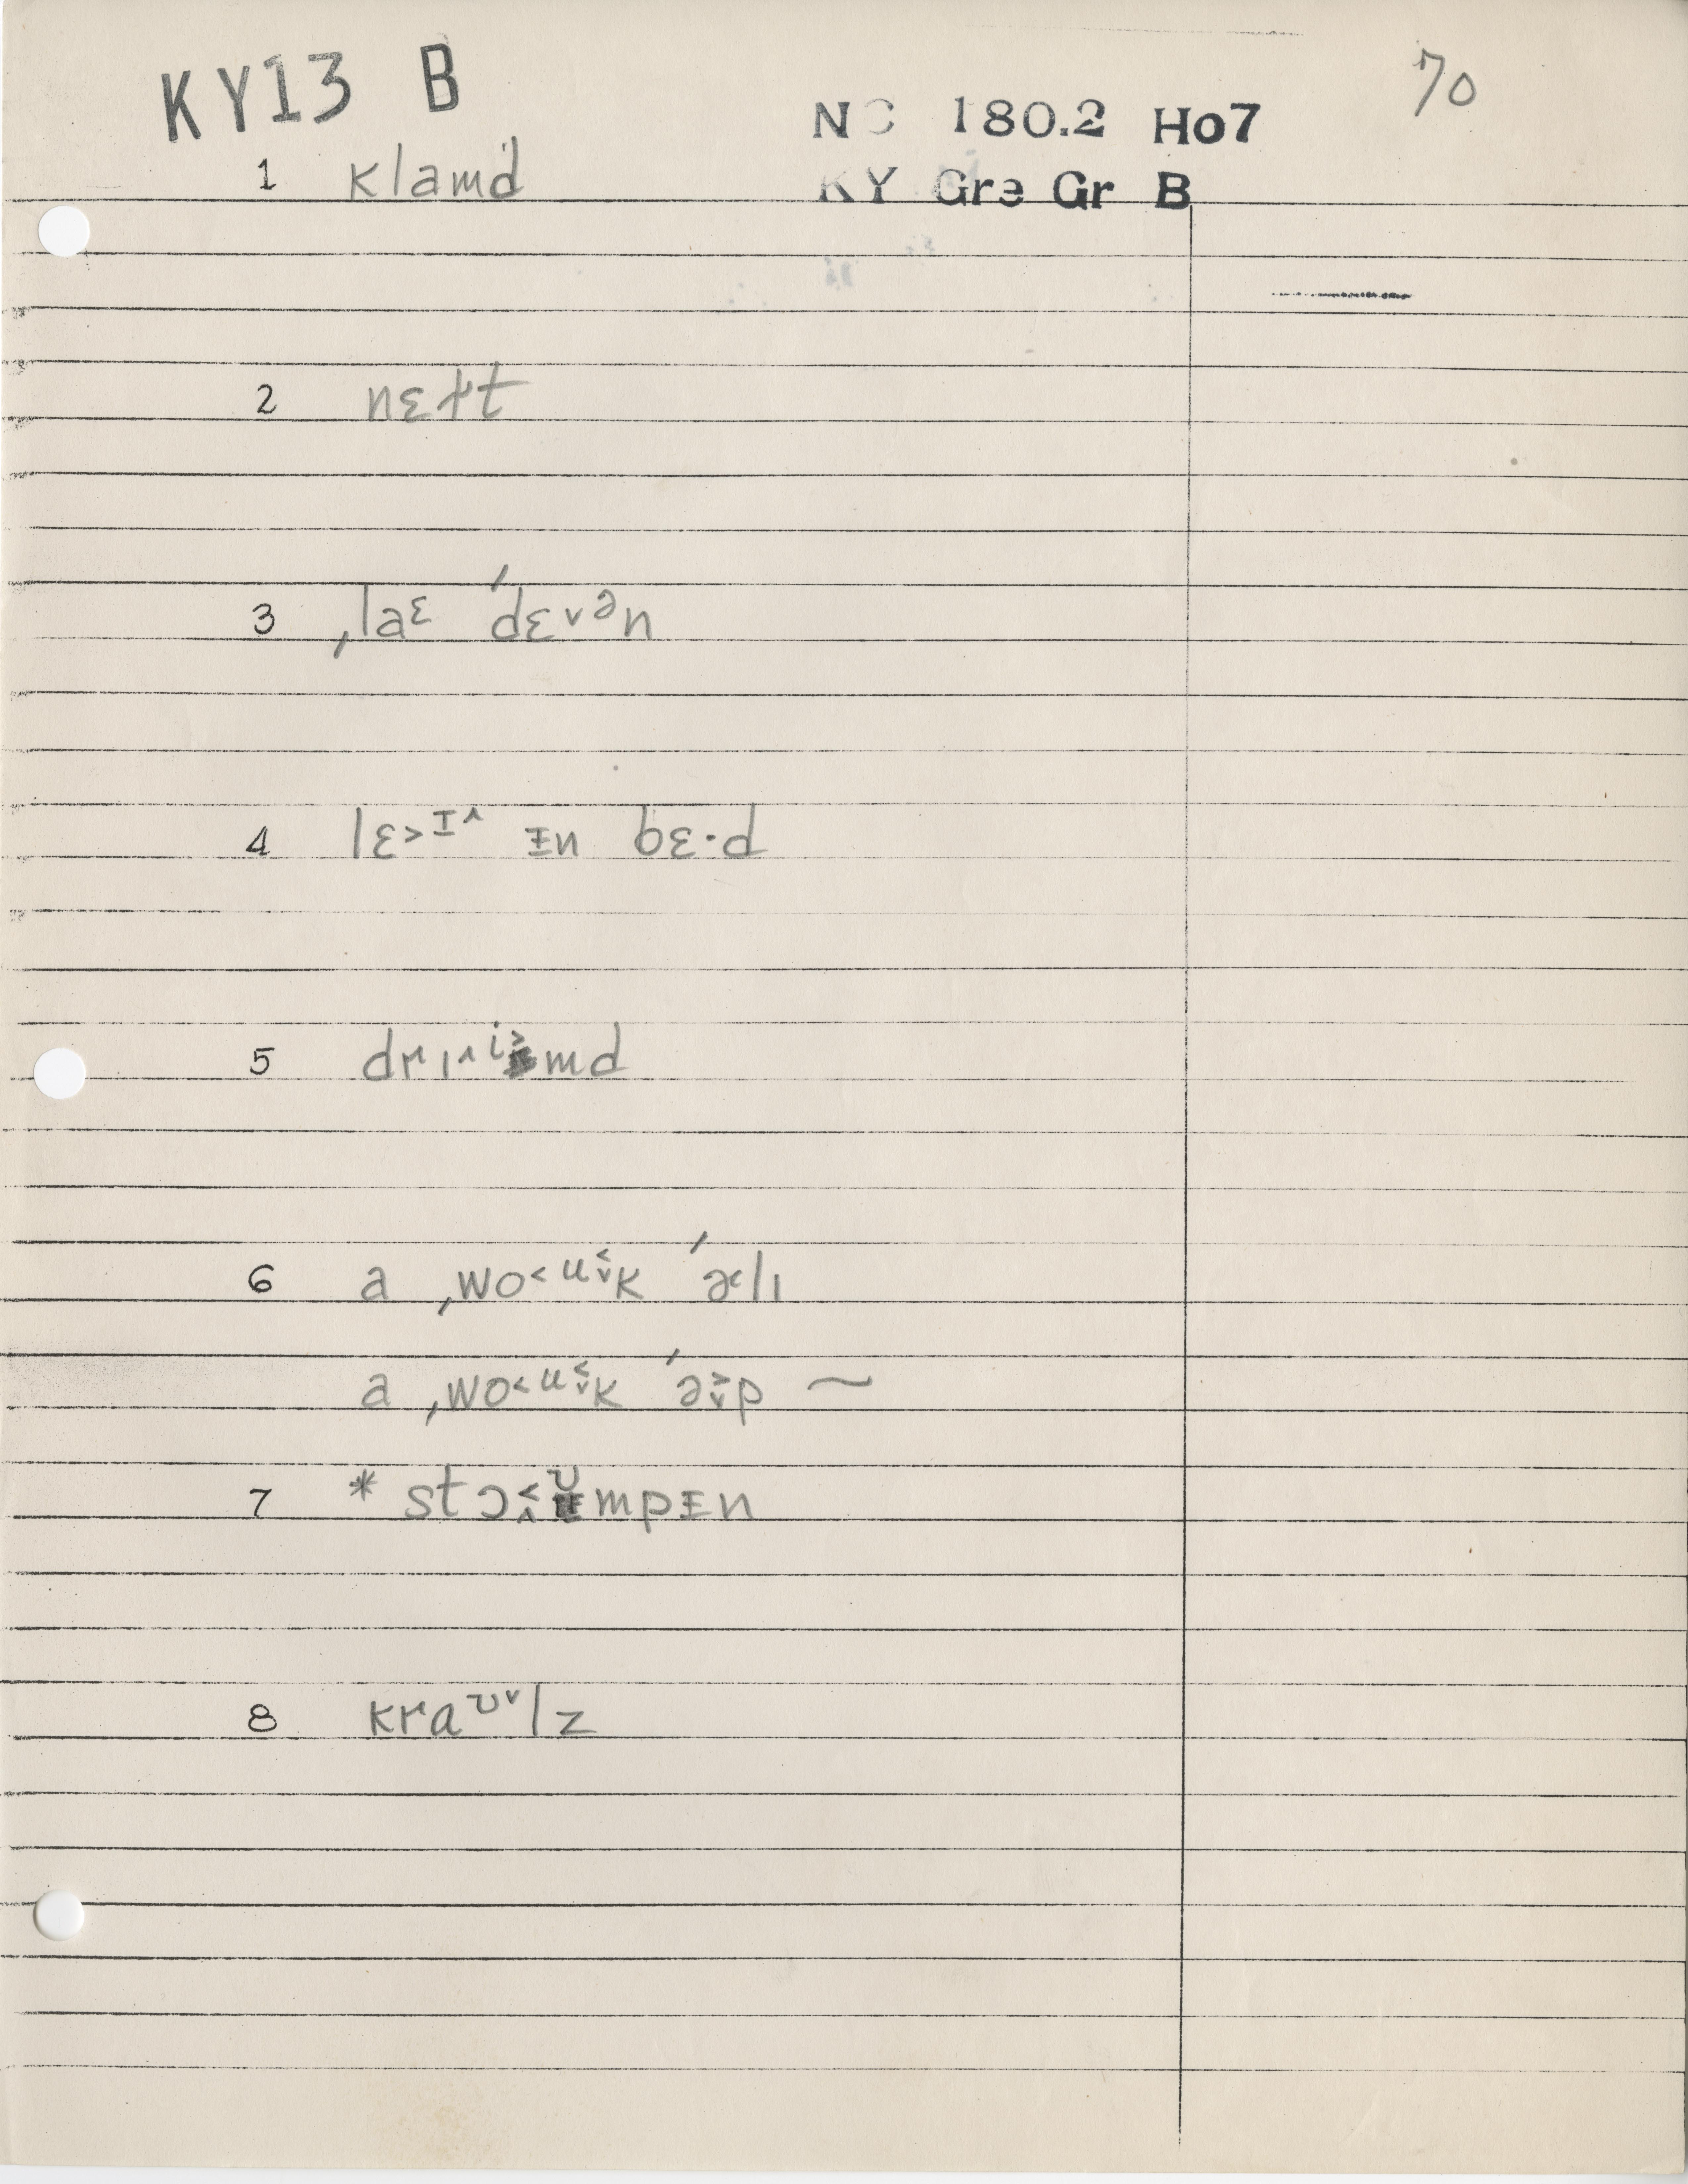 KY13 B
70
NC 180.2 Ho7
KY Gre Gr B
1 klamd
2 nɛɫt
3 ˌlaᵋ ˈdɛ˅ən
4 lɛ˃ᶦ˄ ᵻn bɛ·d
5 drɪ˄ⁱmd
6 a ˌwo˂ᵘk ˈəlɪ
a ˌwo˂ᵘk ˈəp ~
7 * stɔʊmpᵻn
8 kraᶷ˅lz